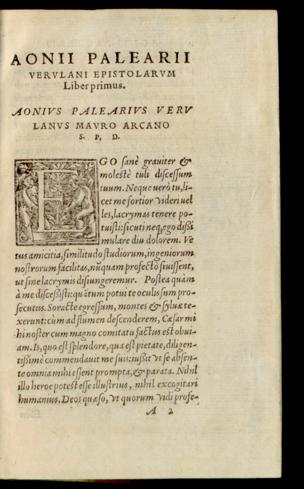 AONII PALEARII
VERVLANI EPISTOLARVM
Liber primus.
AONIVS PALEARIVS VERV
LANVS MAVRO ARCANO
S. P. D.
EGO sanè grauiter &
molestè tuli discessum
tuum. Neque verò tu, li-
cet me fortior videri vel
les, lacrymas tenere po-
tuisti: sicuti neq, ego dissi
mulare diu dolorem. Ve
tus amicitia, similitudo studiorum, ingeniorum
nostrorum facilitas, nũquam profectò siuissent,
ut sine lacrymis disiungeremur. Postea quàm
à me discessisti: quãtum potui te oculis sum pro-
secutus. Soracte egressum, montes & syluæ te-
xerunt: cùm ad flumen descenderem, Cæsar mi
hi noster cum magno comitatu factus est obui-
am. Is, quo est splendore, qua est pietate, diligen-
tissimè commendauit me suis: iussit vt se absen-
te omnia mihi essent prompta, & parata. Nihil
illo heroe potest esse illustrius, nihil excogitari
humanius. Deos quæso, vt quorum vidi profe-
A 2